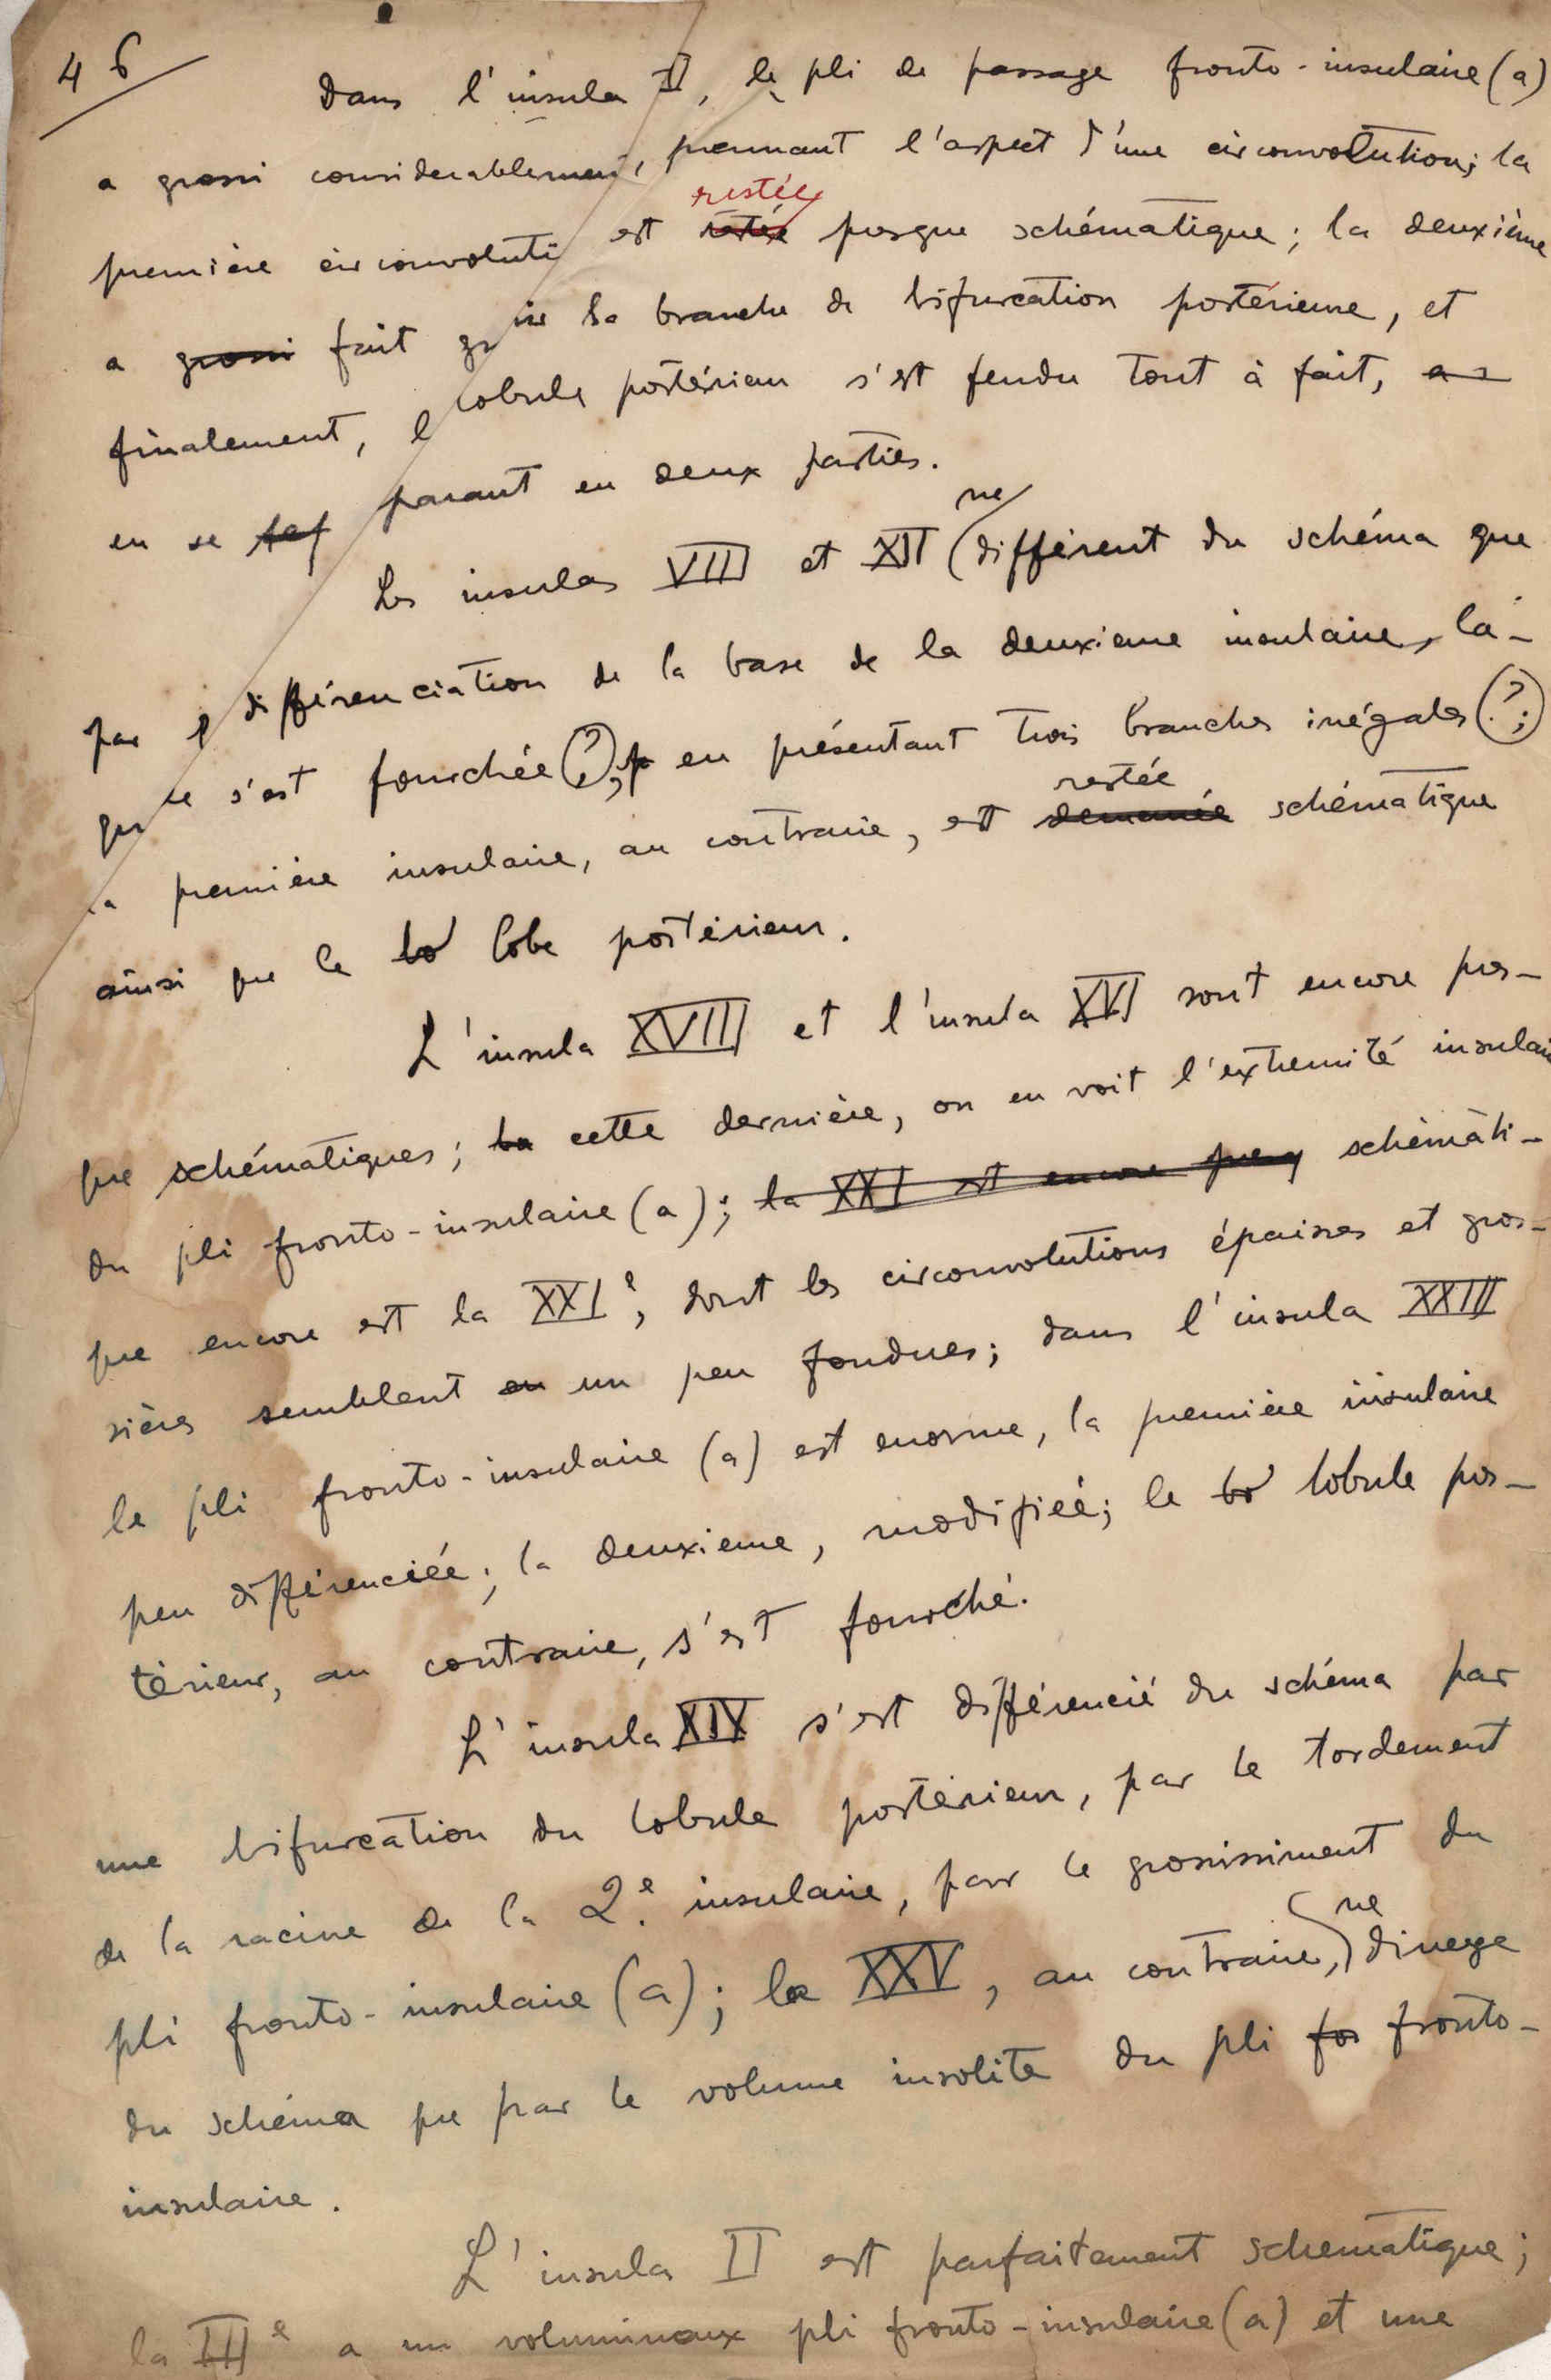 46
Dans l'insula II, le pli de passage fronto-insulaire (a)
a grossi considerablement, prennant l'aspect d'une circonvolution; la
restée
première circonvoluti est restée presque schématique; la deuxième
a grossi fait la branche de bifurcation postérieure, et
finalement, l lobule postérieur s'est fendu tout à fait,
en se parant en deux parties.
ne
Les insulas VIII et XII different du schéma que
par différenciation de la base de la deuxieme insulaire, la-
s'est fourchée (?), en présentant trois branches inégales (?;
restée
première insulaire, au contraire, est schématique
ainsi que le lo lobe postérieur.
L'insula XVIII et l'insula XVI sont encore pres-
que schématiques; la cette dernière, on en voit l'extremité insulai
du pli fronto-insulaire (a); la XXI est encore presq schémati-
que encore est la XXI e, dont les circonvolutions épaisses et gros-
sières semblent en un peu fondues; dans l'insula XXIII
le pli fronto-insulaire (a) est enorme, la première insulaire
peu différenciée; la deuxieme, modifiée; le lo lobule pos-
térieur, au contraire, s'est fourché.
L'insula XIV s'est différencié du schéma par
une bifurcation du lobule postérieur, par le tordement
de la racine de la 2e. insulaire, par le grossissiment du
ne
pli fronto-insulaire (a); la XXV, au contraire, diverge
du schéma que par le volume insolite du pli fro fronto-
insulaire.
L'insula II est parfaitement schematique;
la III e a un volumineux pli fronto-insulaire (a) et une